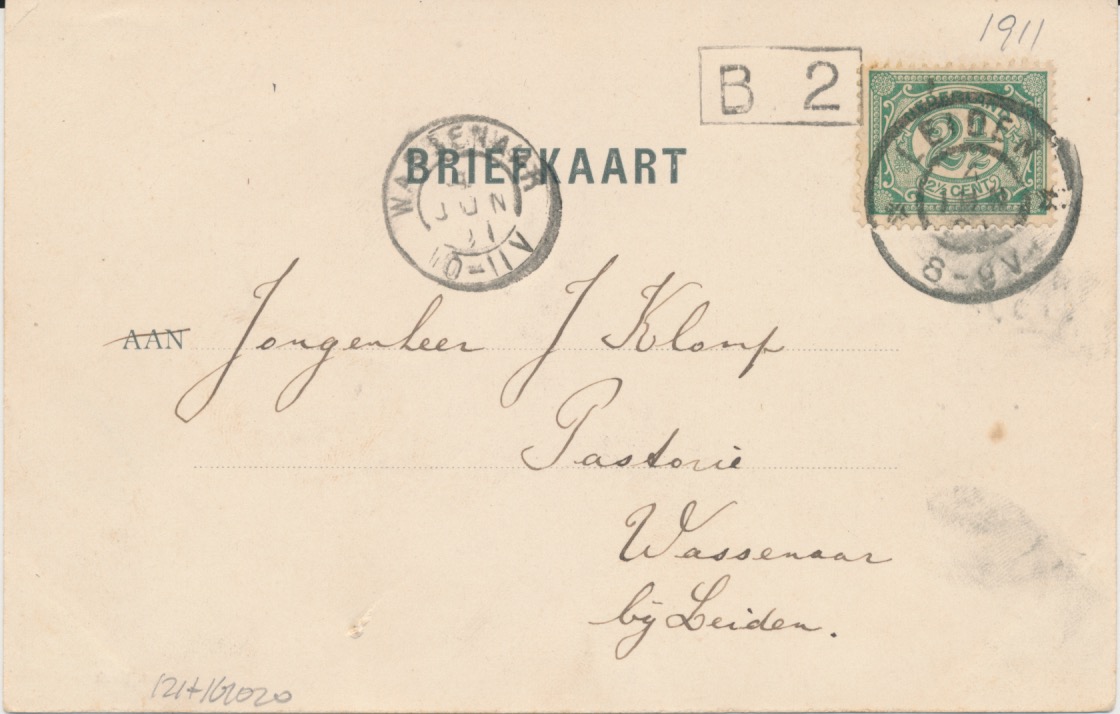 1911
B 2
NEDERLAND
2½
2½ CENT
LEIDEN
4
JUN
8-9V
WASSENAAR
4
JUN
01
10-11V
BRIEFKAART
AAN Jongenheer J Klomp
Pastorie
Wassenaar
bij Leiden.